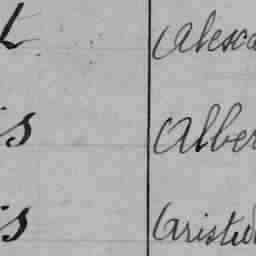 L Alesca
is Alber
is Aristid